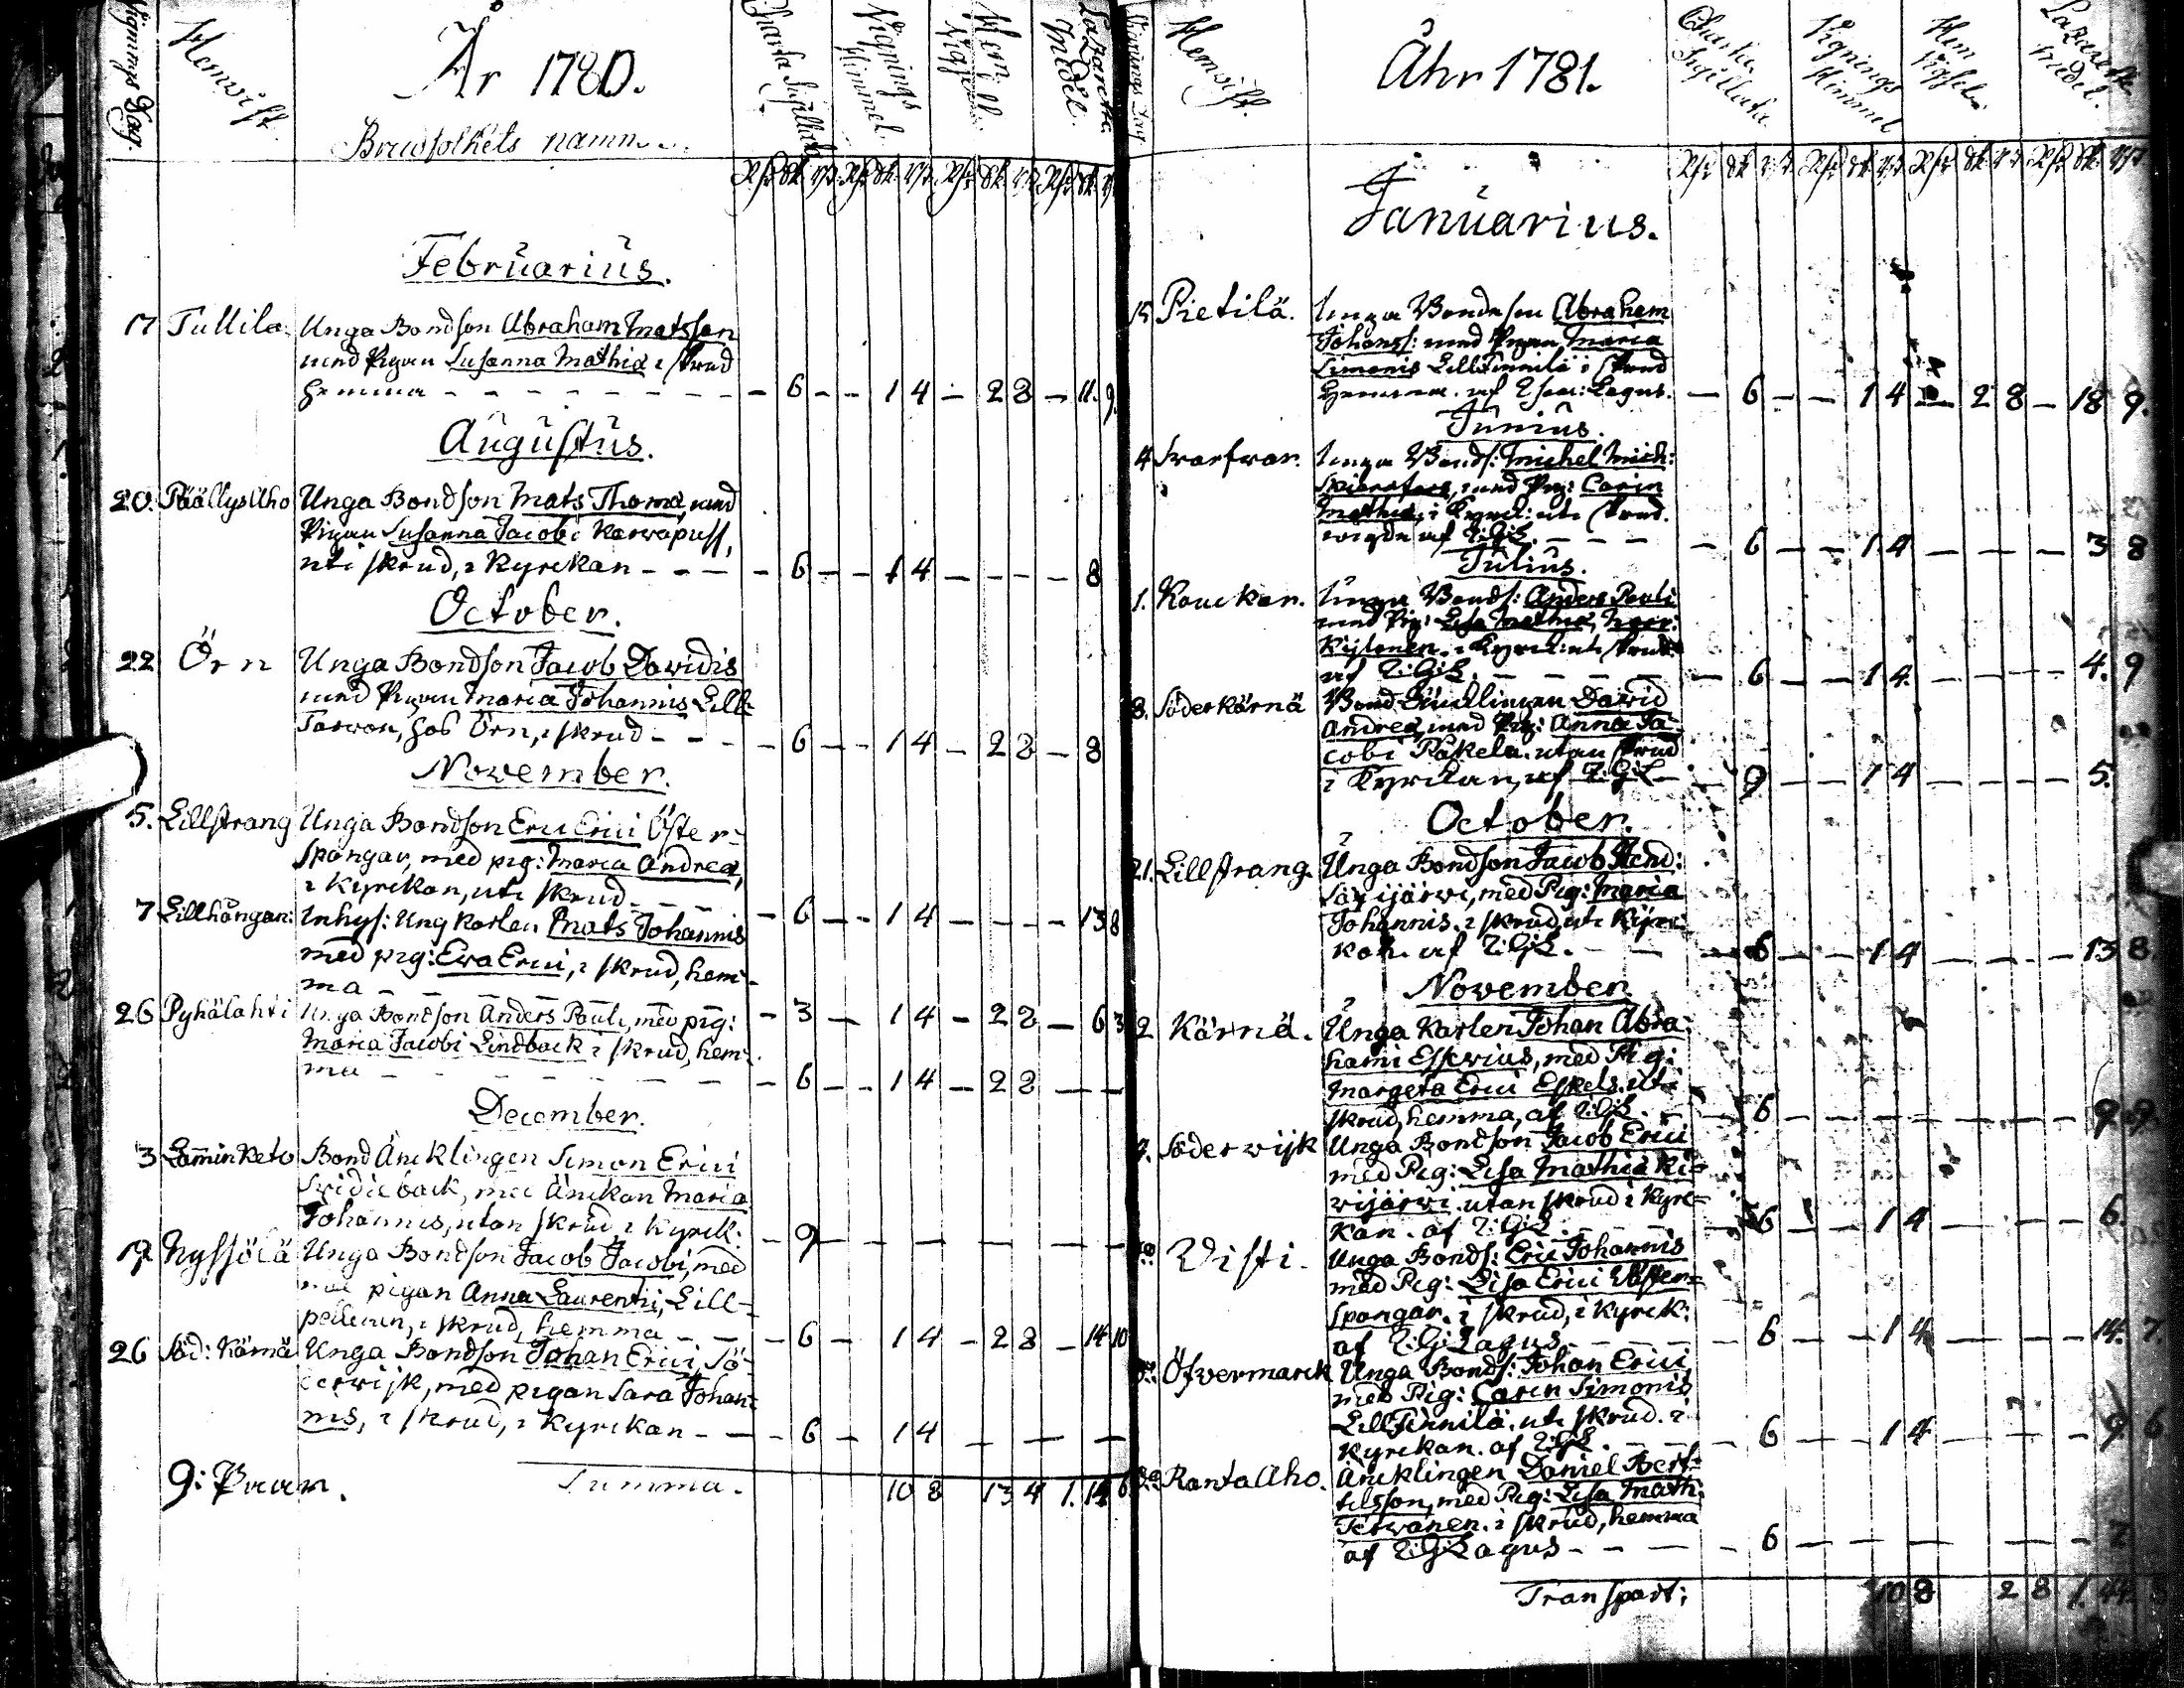 Wignings Dag.
Hemvist
År 1780.
Brudfolkets namn.
Charta Sigillata
Vignings Himmel.
Hem Vigsel
Lazaretts Medel.
Februarius.
17 Tullila. Unga Bondson Abraham Matsson
med Pigan Susanna Mathiæ i skrud
hemma - 6 - - 1 4 - 2 8 - 11. 9.
Augustus.
20. Päällysaho Unga Bondson Mats Thomæ, med
Pigan Susanna Jacobi Karwapuss,
uti skrud, i Kyrckan - - - 6 - - 1 4 - - - 8
October.
22 Örn Unga Bondson Jacob Davidis
med Pigan Maria Johannis Lill
Tarvon, hos Örn, i skrud - - - 6 - - 1 4 - 2 8 - 8
November.
5. Lillstrang Unga Bondson Eric Erici Öster-
spångar, med pig: Maria Andreæ,
i Kyrckan, uti skrud - 6 - - 1 4 - - - 13 8
7 Lillhångan: Inhys: Ung Karlen Mats Johannis
med pig: Ewa Erici, i skrud, hem-
ma - 3 - 1 4 - 2 8 - 6 3
26 Pyhälahti Unga Bondson Anders Pauli, med pig:
Maria Jacobi Lindback i skrud, hem-
ma - 6 - - 1 4 - 2 8 - -
December.
3 Lam̄inketo Bond Änklingen Simon Erici
back, med Änckan Maria
Johannis, utan skrud i Kyrck: - 9 - - - -
19. Nyssölä Unga Bondson Jacob Jacobi, med
pigan Anna Laurentii, Lill-
pellinen, i skrud, hemma - - 6 - 1 4 - 2 8 - 14 10
26 Söd: Kärnä Unga Bondson Johan Erici, Sö-
derwijk, med pigan Sara Johan-
nis, i skrud, i Kyrckan - - 6 - 1 4 - - -
9: Paar. Summa. 10 8 13 4 1. 14 6
Hemvist.
Åhr 1781.
Charta Sigillata.
Vignings Himmel
Hem Vigsel
Lazaretts Medel.
Januarius.
Pietilä. Unga Bondeson Abraham
Johanss: med Pigan Maria
Simonis LillTinnilä i skrud
hemma. af Lagus. - 6 - - 1 4 - 2 8 - 18 9.
Junius.
4 Svarfvar. Unga Bonds: Michel Mich:
med Pig: Carin
Mathiæ, i Kyrck: uti skrud.
wigde af E:G:L. - - - 6 - - 1 4 - - - 3 8
Julius.
1. Kouckar. Unga Bonds: Anders Pauli
med Pig: Lisa Mathiæ,
i Kyrck: uti skrud
af E:G:L. - 6 - 1 4 - - 4. 9
8. Söderkärnä Bond Änklingen David
Andreæ, med Pig: Anna Ja-
cobi Päkela. utan skrud
i Kyrckan, af E:G:L - 9 - - 1 4 - - - 5.
October.
21. Lillstrang. Unga Bondson Jacob Hend:
Säxijärvi, med Pig: Maria
Johannis. i skrud, uti Kyrc-
kan. af E:G:L. - 6 - - 1 4 - - - 13 8.
November
2 Kärnä. Unga Karlen Johan Abra-
hami Essevius, med Pig:
Margeta Erici Eskels. uti
skrud, hemma, af E:G:L. - - 6 - - - - - 9. 9.
4. Söderwijk Unga Bondson Jacob Erici
med Pig: Lisa Mathiæ Ki-
vijärvi. utan skrud i Kyrc-
kan. af E:G:L. - 6 - 1 4 - - - 6.
Visti. Unga Bonds: Eric Johannis
med Pig: Lisa Erici Väster-
spångar. i skrud, i Kyrck:
af E:G:Lagus - 6 - 1 4 - - - 14. 7.
Öfvermarck Unga Bonds: Johan Erici
med Pig: Carin Simonis
LillTinnilä. uti skrud. i
Kyrckan. af E:G:L. - - 6 - - 1 4 - - - 9 6
RantaAho. Äncklingen Daniel Bert-
tilsson, med Pig: Lisa Math:
Terwanen. i skrud, hemma
af E:G:Lagus - - - 6 - - - - 7
Transport; 10 8 2 8 1. 44.